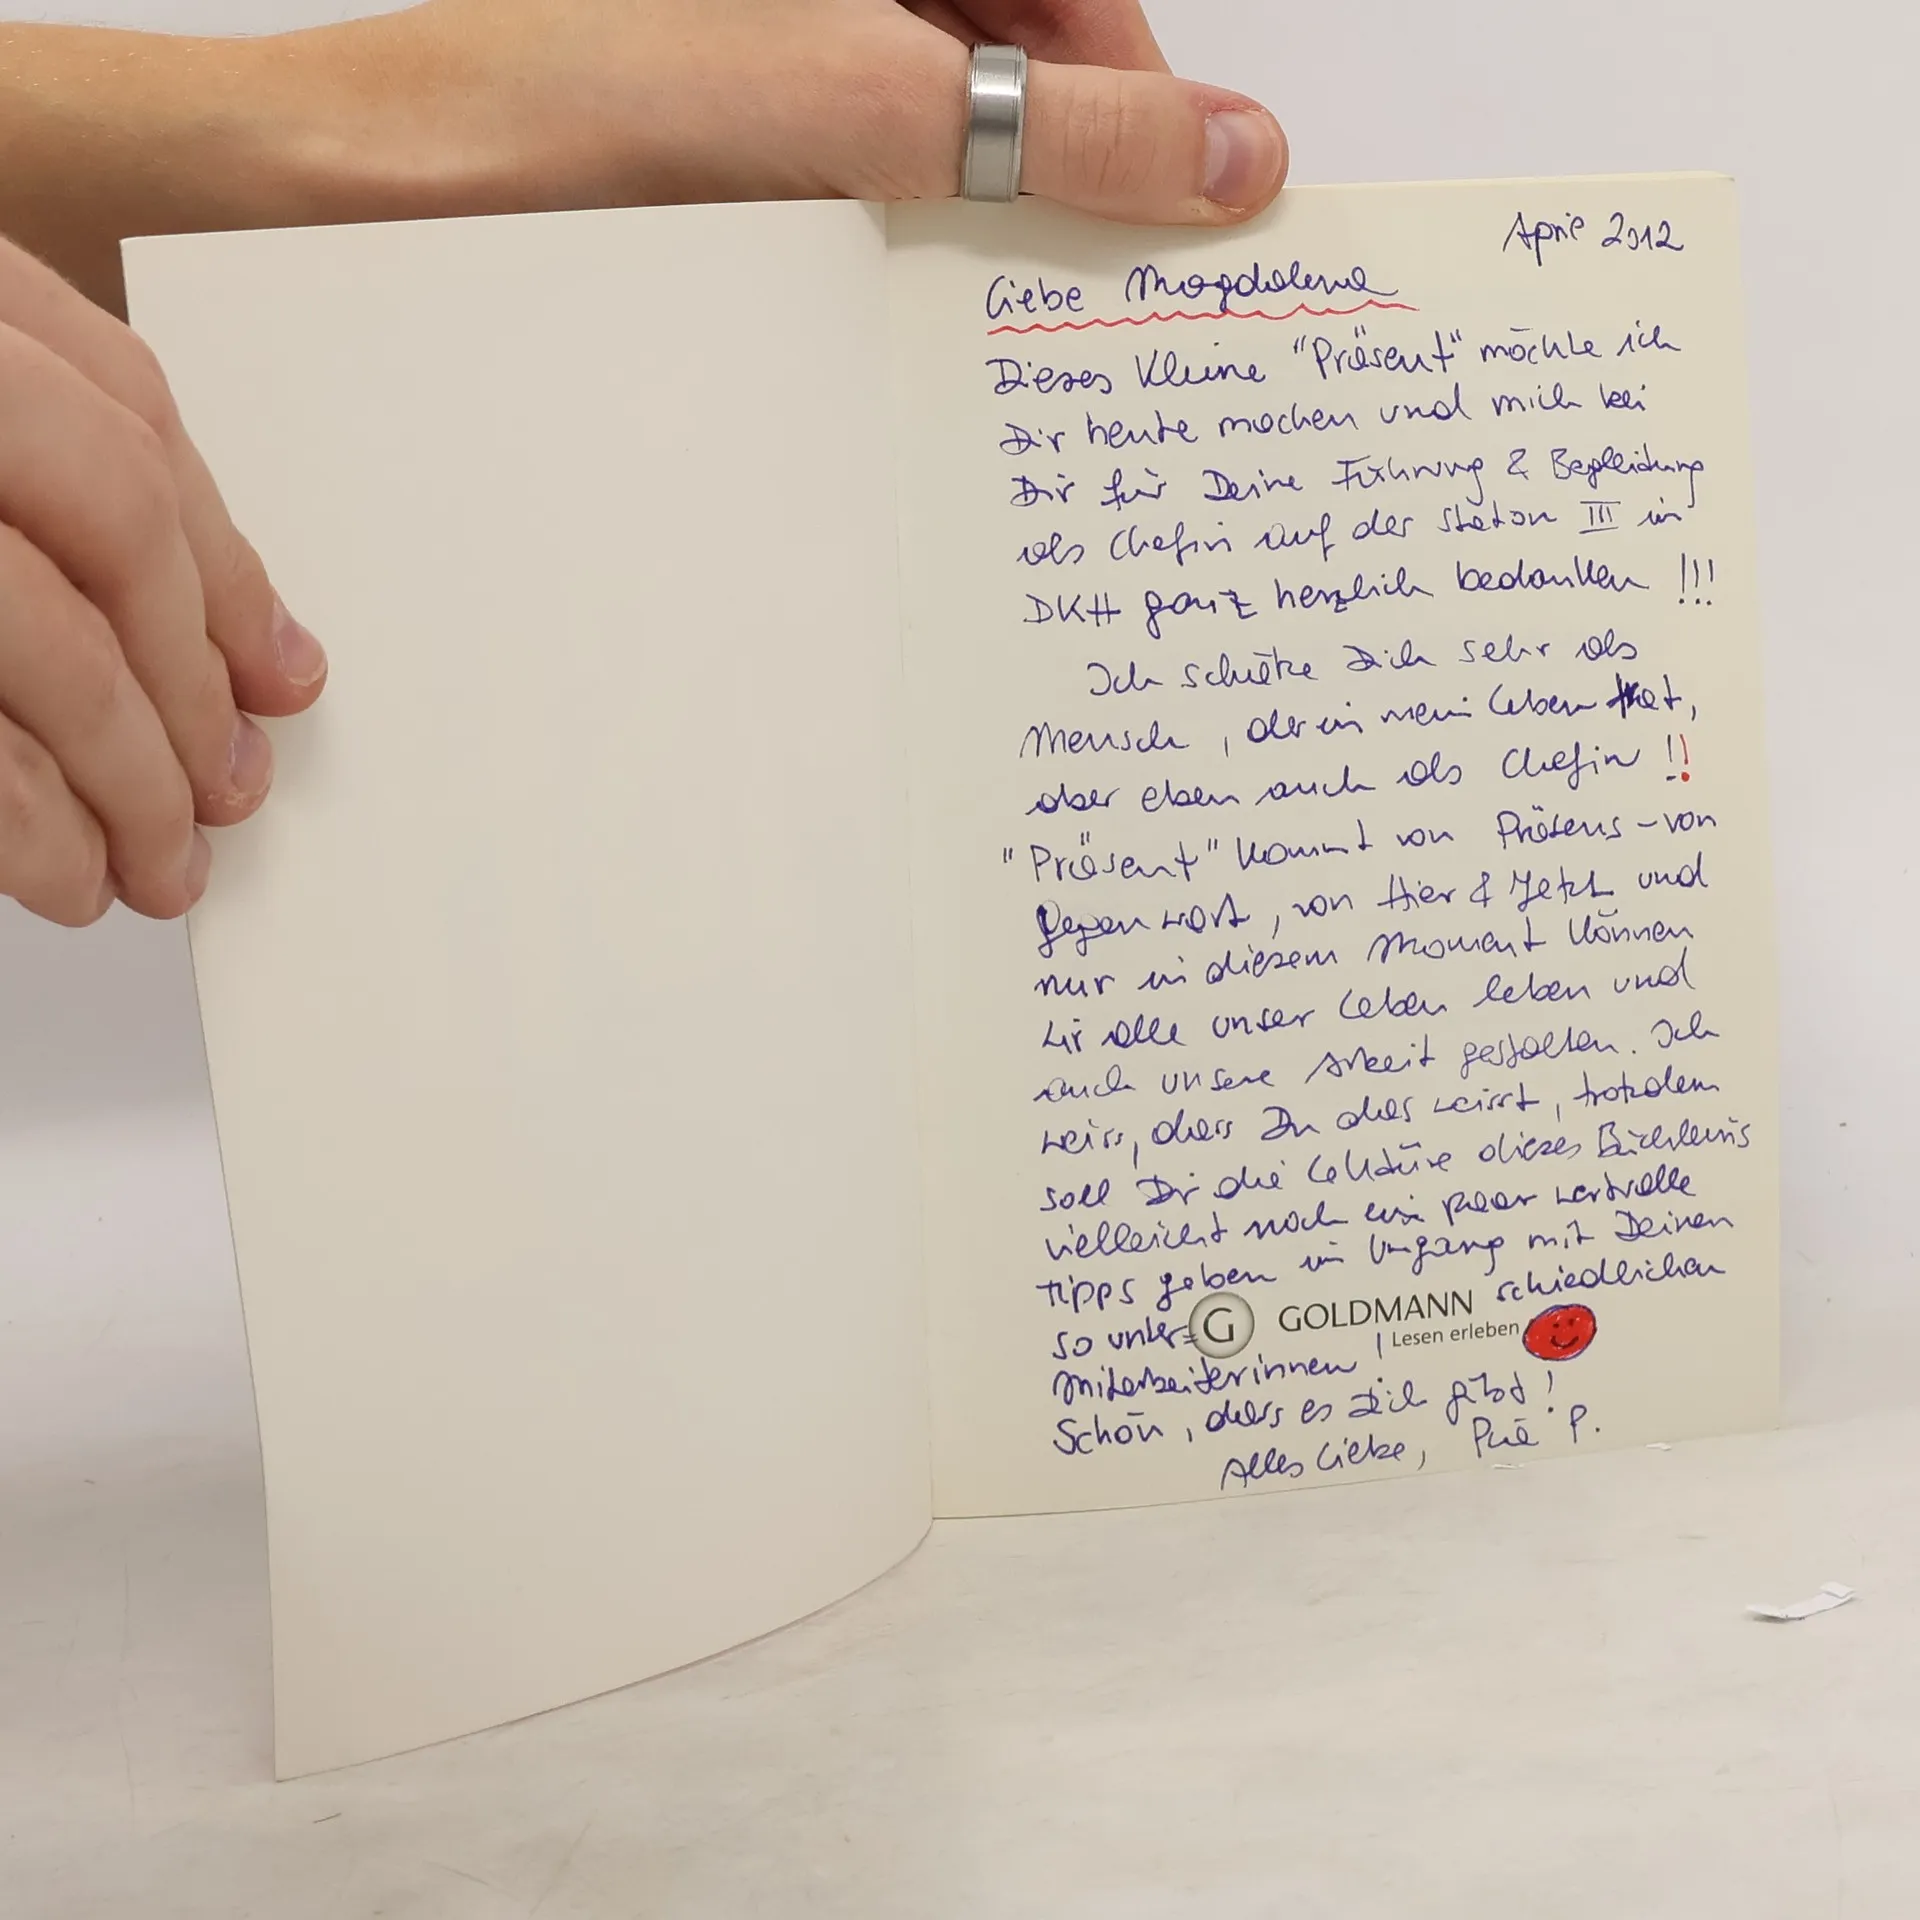 April 2012
Liebe Magdalena
Dieses kleine "Präsent" möchte ich
Dir heute machen und mich bei
Dir für Deine Führung & Begleitung
als Chefin auf der Station III im
DKH ganz herzlich bedanken !!!
Ich schätze Dich sehr als
Mensch, der in mein Leben trat,
aber eben auch als Chefin !!
"Präsent" kommt von Präsens - von
Gegenwart, von Hier & Jetzt und
nur in diesem Moment können
wir alle unser Leben leben und
auch unsere Arbeit gestalten. Ich
weiss, dass Du das weisst, trotzdem
soll Dir die Lektüre dieses Büchleins
vielleicht noch ein paar wertvolle
Tipps geben im Umgang mit Deinen
so unter= schiedlichen
G GOLDMANN
Lesen erleben
Mitarbeiterinnen !
Schön, dass es Dich gibt!
Alles Liebe, P.